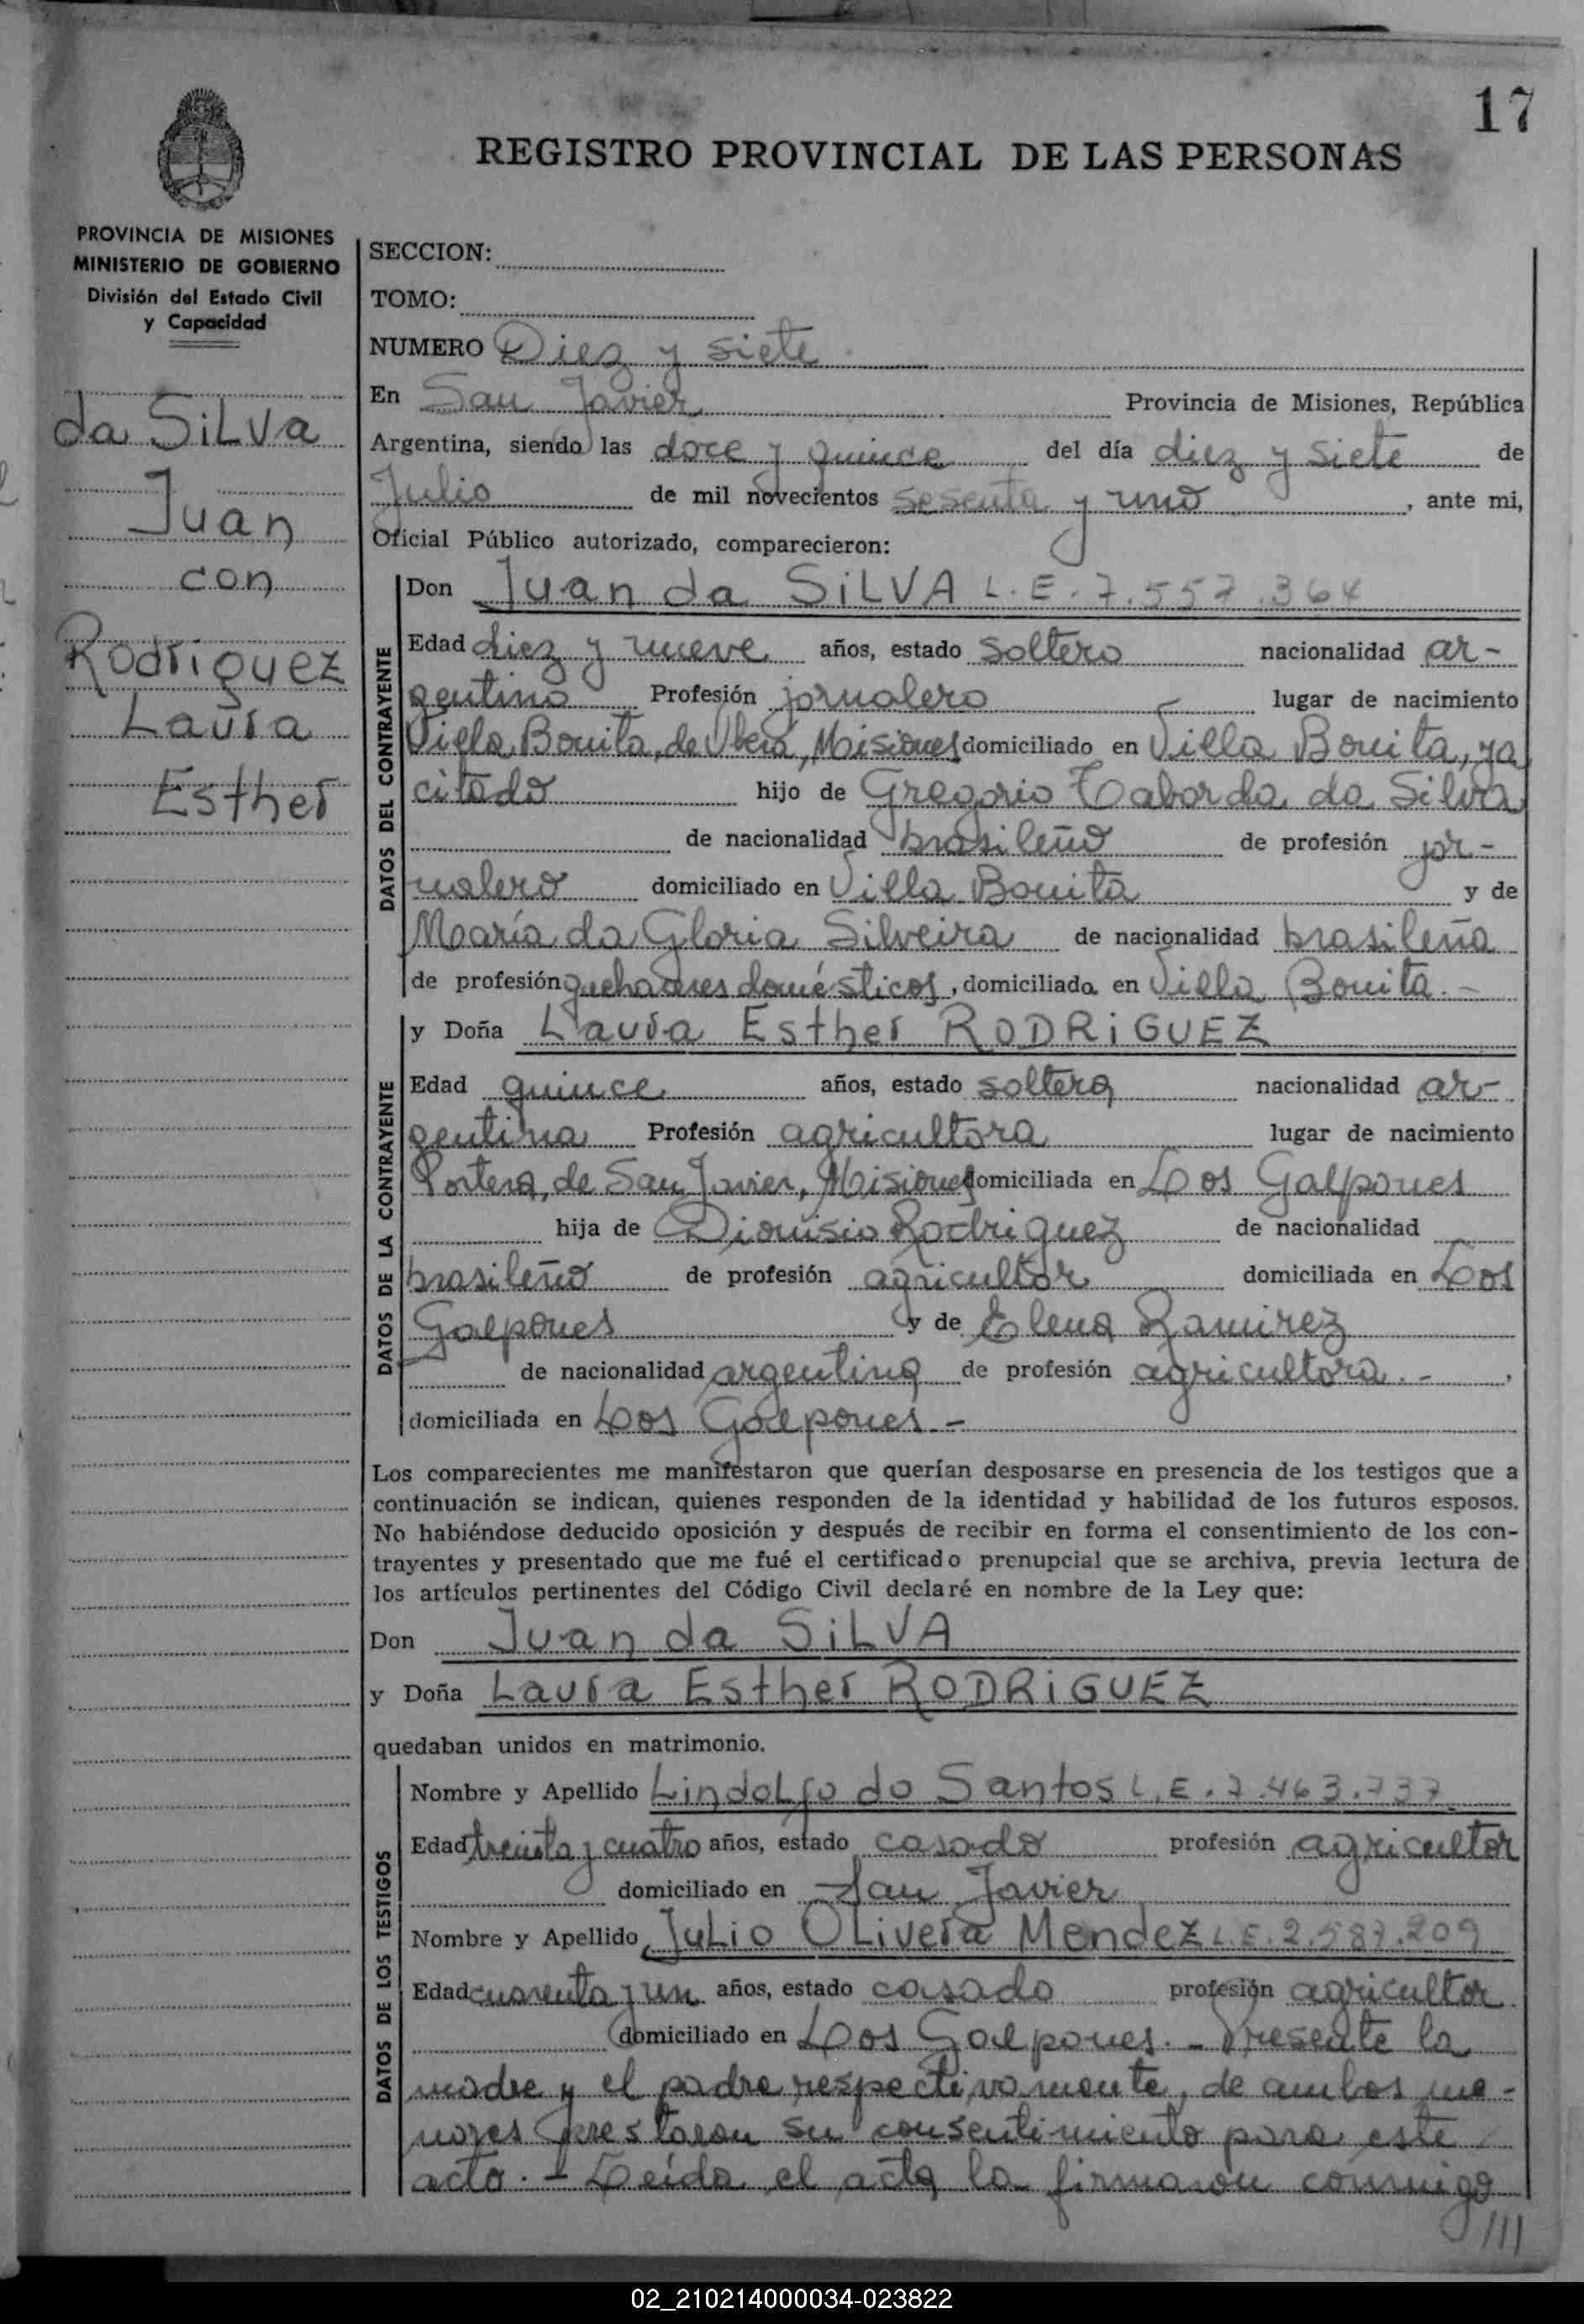 17
REGISTRO PROVINCIAL DE LAS PERSONAS
PROVINCIA DE MISIONES
MINISTERIO DE GOBIERNO
División del Estado Civil
y Capacidad
da SiLVa
Juan
con
Rodriguez
Laura
Esther
SECCION:
TOMO:
NUMERO Diez y siete
En San Javier Provincia de Misiones, República
Argentina, siendo las doce y quince del día diez y siete de
Julio de mil novecientos sesenta y uno, ante mi,
Oficial Público autorizado, comparecieron:
DATOS DEL CONTRAYENTE
Don Juan da SiLVA L.E. 7.557.364
Edad diez y nueve años, estado soltero nacionalidad ar-
gentino Profesión jornalero lugar de nacimiento
Villa Bonita, de Oberá, Misiones domiciliado en Villa Bonita, ya
citado hijo de Gregorio Taborda da Silva
de nacionalidad brasileño de profesión jor-
nalero domiciliado en Villa Bonita y de
María da Gloria Silveira de nacionalidad brasileña
de profesión quehaceres domésticos, domiciliada en Villa Bonita.-
DATOS DE LA CONTRAYENTE
y Doña Laura Esther RODRiGUEZ
Edad quince años, estado soltera nacionalidad ar-
gentina Profesión agricultora lugar de nacimiento
Portera, de San Javier, Misiones domiciliada en Los Galpones
hija de Dionisio Rodriguez de nacionalidad
brasileño de profesión agricultor domiciliada en Los
Galpones y de Elena Ramirez
de nacionalidad argentina de profesión agricultora.- ,
domiciliada en Los Galpones.-
Los comparecientes me manifestaron que querían desposarse en presencia de los testigos que a
continuación se indican, quienes responden de la identidad y habilidad de los futuros esposos.
No habiéndose deducido oposición y después de recibir en forma el consentimiento de los con-
trayentes y presentado que me fué el certificado prenupcial que se archiva, previa lectura de
los artículos pertinentes del Código Civil declaré en nombre de la Ley que:
Don Juan da SiLVA
y Doña Laura Esther RODRiGUEZ
quedaban unidos en matrimonio.
DATOS DE LOS TESTIGOS
Nombre y Apellido Lindolfo do Santos L.E. 7.463.737
Edad treinta y cuatro años, estado casado profesión agricultor
domiciliado en San Javier
Nombre y Apellido Julio Olivera Mendez L.E. 2.587.209
Edad cuarenta y un años, estado casado profesión agricultor
domiciliado en Los Galpones.- Presente la
madre y el padre respectivamente, de ambos me-
nores prestaron su consentimiento para este
acto.- Leída el acta la firmaron conmigo
///
02_210214000034-023822